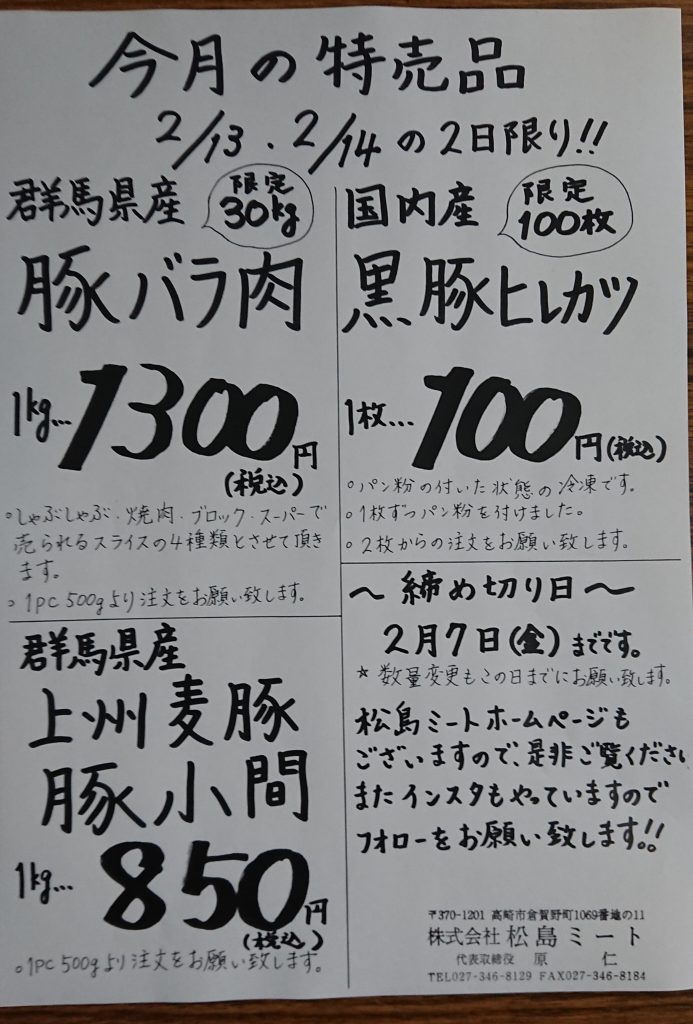 今月の特売品
2/13、2/14の2日限り!!
群馬県産
限定
30kg
豚バラ肉
1kg…1300円
(税込)
○しゃぶしゃぶ・焼肉・ブロック・スーパーで
売られるスライスの4種類とさせて頂き
ます。
○1PC 500gより注文をお願い致します。
国内産
限定
100枚
黒豚ヒレカツ
1枚…100円(税込)
○パン粉の付いた状態の冷凍です。
○1枚ずつパン粉を付けました。
○2枚からの注文をお願い致します。
群馬県産
上州麦豚
豚小間
1kg…850円
(税込)
○1PC 500gより注文をお願い致します。
～締め切り日～
2月7日(金)までです。
★数量変更もこの日までにお願い致します。
松島ミートホームページも
ございますので、是非ご覧ください
またインスタもやっていますので
フォローをお願い致します!!
〒370-1201 高崎市倉賀野町1069番地の11
株式会社 松島ミート
代表取締役 原 仁
TEL027-346-8129 FAX027-346-8184